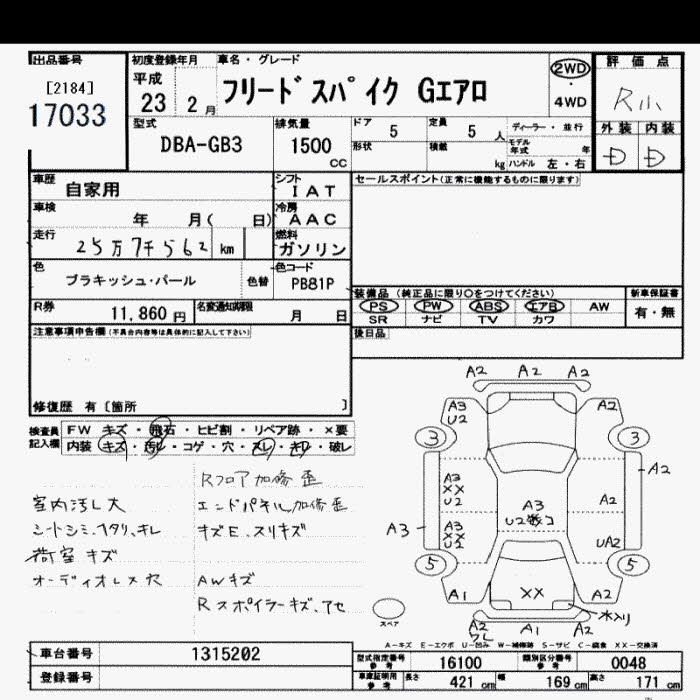 出品番号
[2184]
17033
初度登録年月
平成
23 2月
車名・グレード
フリードスパイク Gエアロ
2WD
4WD
評価点
R
外装 内装
D D
型式
DBA-GB3
排気量
1500
CC
ドア 5
定員 5人
ディーラー・並行
形状
積載
kg
モデル年式 年
ハンドル 左・右
車歴
自家用
シフト
IAT
セールスポイント(正常に機能するものに限ります)
車検
年 月( 日)
冷房
AAC
走行
25万7千562 km
燃料
ガソリン
色
ブラキッシュ・パール
色替
色コード
PB81P
装備品 (純正品に限り○をつけてください)
PS PW ABS エアB AW
SR ナビ TV カワ
新車保証書
有・無
R券
11,860 円
名変通知期限
月 日
後日品
注意事項申告欄(不具合内容等は具体的に記入して下さい)
修復歴 有〔箇所 〕
検査員記入欄
FW キズ・飛石・ヒビ割・リペア跡・×要
内装 キズ・汚レ・コゲ・穴・スレ・キレ・破レ
Rフロア加修歪
室内汚レ大
エンドパネル加修歪
シートシミ、
キズE、スリキズ
荷室キズ
オーディオレス穴
AWキズ
Rスポイラーキズ、アセ
A2 A2 A2
A3
U2
A2
3 3
A2
A3
XX
U2
A3
A2
A3
A3
XX
U2
UA2
5 5
A1 XX A2
水入り
スペア
A2 A1 A2
A-キズ E-エクボ U-凹み W-補修跡 S-サビ C-腐食 XX-交換済
車台番号
1315202
登録番号
型式指定番号
参考
16100
類別区分番号
参考
0048
車庫証明用
参考
長さ 421 cm
幅 169 cm
高さ 171 cm